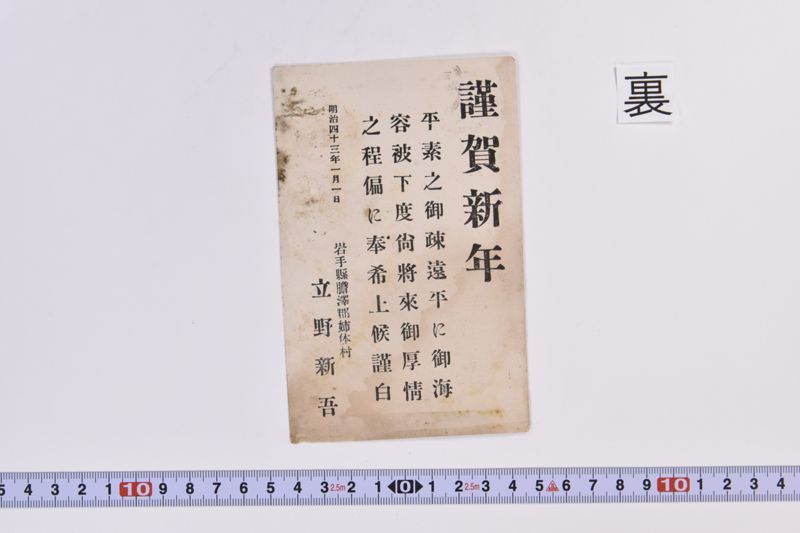 裏
謹賀新年
平素之御疎遠平に御海
容被下度尙將來御厚情
之程偏に奉希上候謹白
明治四十三年一月一日
岩手縣膽澤郡姉体村
立野新吾
5 4 3 2 1 10 9 8 7 6 5 4 3 2.5m 2 1 0 1 2 2.5m 3 4 5 6 7 8 9 10 1 2 3 4